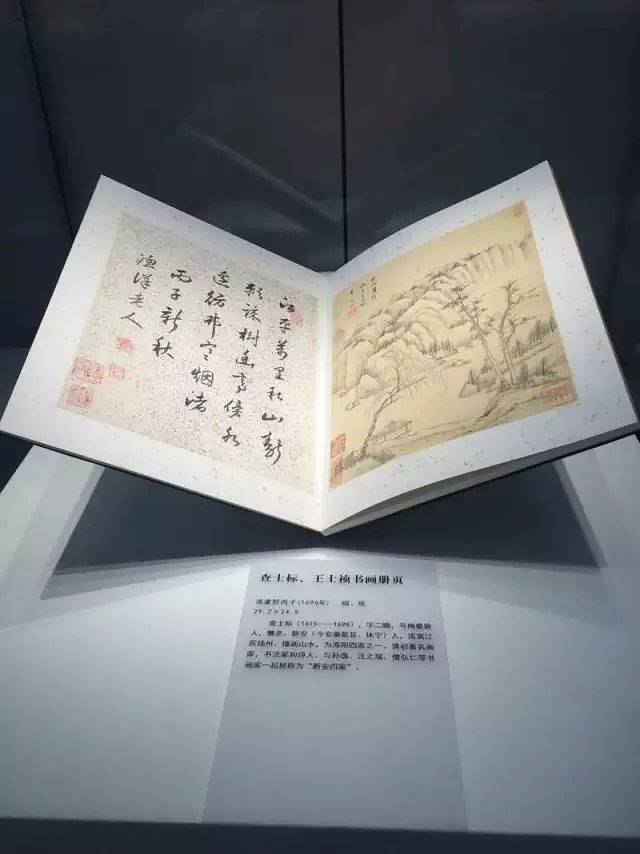 萬里秋山
疎樹幽亭傍水
丙子新秋
漁洋老人
查士标、王士祯书画册页
清康熙丙子(1696年) 绢、纸
29.2×24.5
查士标(1615——1698),字二瞻,号梅壑散
人、懒老,新安(今安徽歙县、休宁)人,流寓江
苏扬州。擅画山水,为海阳四家之一,清初著名画
家,书法家和诗人,与孙逸、汪之瑞、僧弘仁等书
画家一起被称为“新安四家”。